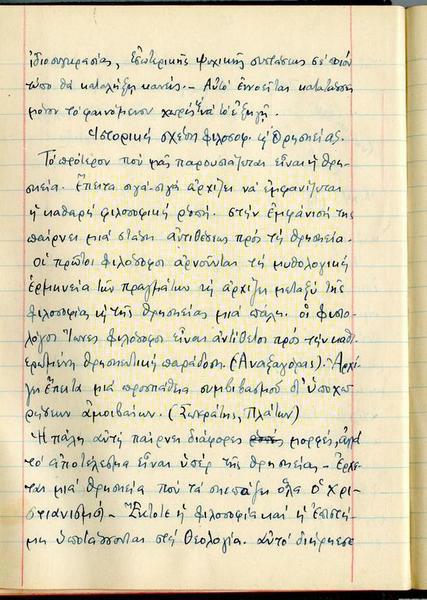 ἰδιοσυγκρασίας, ἐσωτερικῆς ψυχικῆς συστάσεως σὲ ποιόν
τύπο θὰ καταλήξη κανείς. - Αὐτὸ ἐννοεῖται κατατάσσει
μόνον τὸ φαινόμενον χωρὶς νὰ τὸ ἐξηγῆ.
Ἱστορικὴ σχέση φιλοσοφ. κ Θρησκείας.
Τὸ πρότερον ποὺ μᾶς παρουσιάζεται εἶναι ἡ θρη-
σκεία. Ἔπειτα σιγά-σιγὰ ἀρχίζει νὰ ἐμφανίζεται
ἡ καθαρὴ φιλοσοφικὴ. στὴν ἐμφάνισή της
παίρνει μιὰ στάση ἀντιθέσεως πρὸς τὴ θρησκεία.
οἱ πρῶτοι φιλόσοφοι ἀρνοῦνται τὴ μυθολογικὴ
ἑρμηνεία τῶν πραγμάτων κ ἀρχίζει μεταξὺ τῆς
φιλοσοφίας κ τῆς θρησκείας μιὰ πάλη. οἱ φυσιο-
λόγοι Ἴωνες φιλόσοφοι εἶναι ἀντίθετοι πρὸς τὴν καθι-
ερωμένη θρησκευτικὴ παράδοση. (Ἀναξαγόρας). Ἀρχί-
ζει ἔπειτα μιὰ προσπάθεια συμβιβασμοῦ δι' ὑποχω-
ρήσεων ἀμοιβαίων. (Σωκράτης, Πλάτων)
Ἡ πάλη αὐτὴ παίρνει διάφορες μορφές, ἀλλὰ
τὸ ἀποτέλεσμα εἶναι ὑπὲρ τῆς θρησκείας - Ἔρχε-
ται μιὰ θρησκεία ποὺ τὰ σκεπάζει ὅλα ὁ Χρι-
στιανισμός - Ἔκτοτε ἡ φιλοσοφία καὶ ἡ ἐπιστή-
μη ὑποτάσσονται στὴ Θεολογία. αὐτὸ διήρκεσε